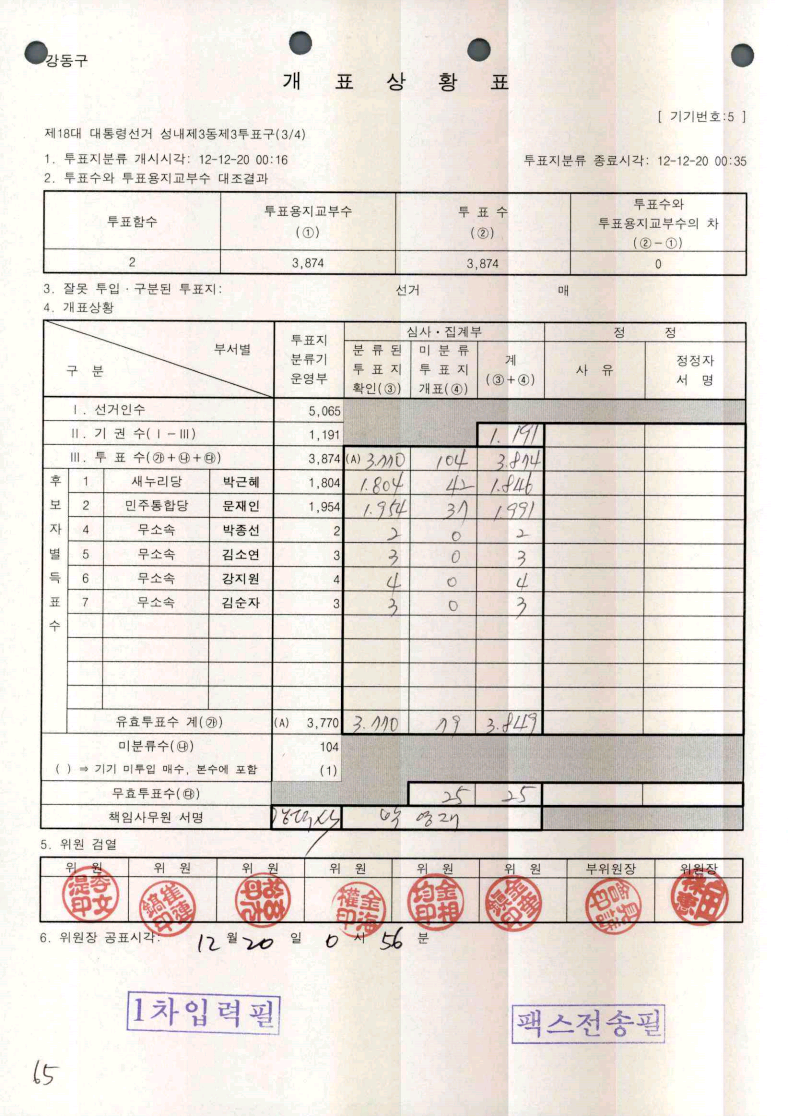 강동구
개 표 상 황 표
[ 기기번호:5 ]
제18대 대통령선거 성내제3동제3투표구(3/4)
1. 투표지분류 개시시각: 12-12-20 00:16 투표지분류 종료시각: 12-12-20 00:35
2. 투표수와 투표용지교부수 대조결과
투표함수 투표용지교부수 (①) 투 표 수 (②) 투표수와 투표용지교부수의 차 (②-①)
2 3,874 3,874 0
3. 잘못 투입 · 구분된 투표지: 선거 매
4. 개표상황
구 분 부서별 투표지 분류기 운영부 심사·집계부 정 정
분 류 된 투 표 지 확인(③) 미 분 류 투 표 지 개표(④) 계 (③+④) 사 유 정정자 서 명
Ⅰ. 선거인수 5,065
Ⅱ. 기 권 수(Ⅰ-Ⅲ) 1,191 1.191
Ⅲ. 투 표 수(㉮+㉯+㉰) 3,874 (A) 3.770 104 3.874
후보자별득표수
1 새누리당 박근혜 1,804 1.804 42 1.846
2 민주통합당 문재인 1,954 1.954 37 1991
4 무소속 박종선 2 2 0 2
5 무소속 김소연 3 3 0 3
6 무소속 강지원 4 4 0 4
7 무소속 김순자 3 3 0 3
유효투표수 계(㉮) (A) 3,770 3.770 79 3.849
미분류수(㉯) 104
( ) ⇒ 기기 미투입 매수, 본수에 포함 (1)
무효투표수(㉰) 25 25
책임사무원 서명
5. 위원 검열
위 원 위 원 위 원 위 원 위 원 위 원 부위원장 위원장
6. 위원장 공표시각: 12 월 20 일 0 시 56 분
1차입력필
팩스전송필
65